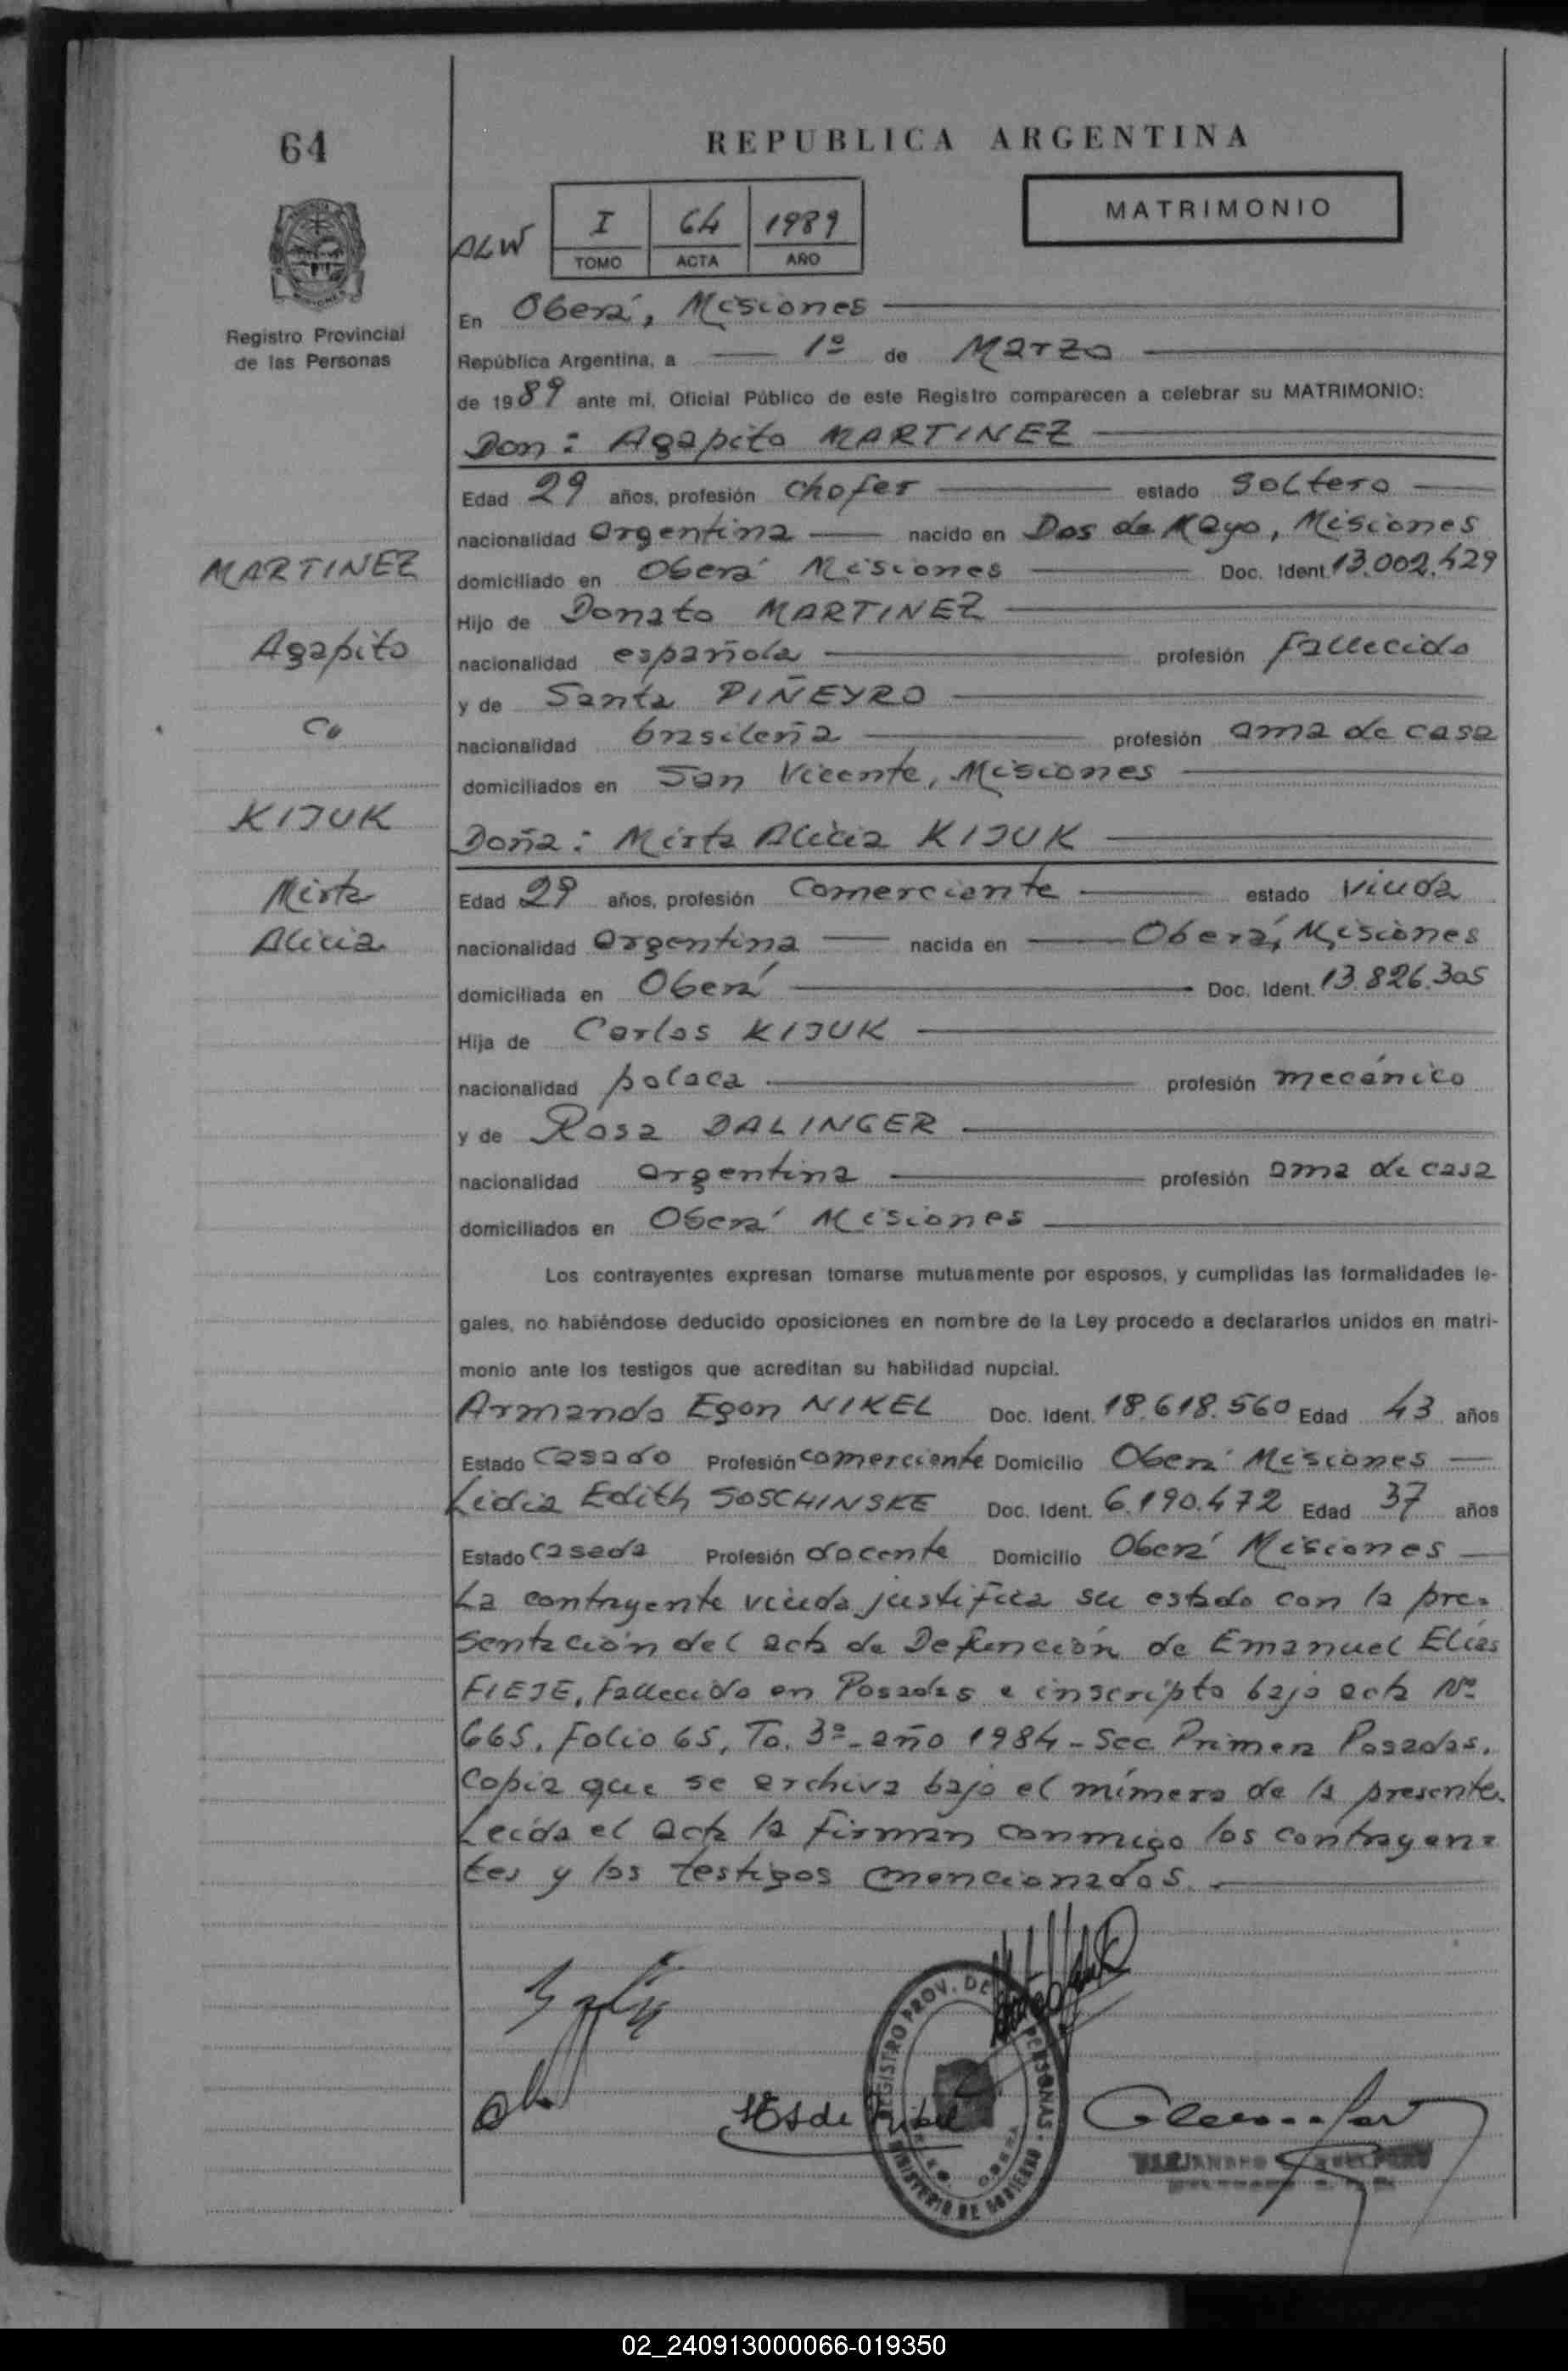 64
REPUBLICA ARGENTINA
MATRIMONIO
ALW
I 64 1989
TOMO ACTA AÑO
Registro Provincial
de las Personas
En Oberá, Misiones
República Argentina, a 1º de Marzo
de 1989 ante mí, Oficial Público de este Registro comparecen a celebrar su MATRIMONIO:
Don: Agapito MARTINEZ
Edad 29 años, profesión chofer estado soltero
nacionalidad argentina nacido en Dos de Mayo, Misiones
MARTINEZ
domiciliado en Oberá Misiones Doc. Ident. 13.002.429
Hijo de Donato MARTINEZ
Agapito
nacionalidad española profesión fallecido
y de Santa PIÑEYRO
Co
nacionalidad brasileña profesión ama de casa
domiciliados en San Vicente, Misiones
KIJUK
Doña: Mirta Alicia KIJUK
Mirta
Edad 29 años, profesión comerciante estado viuda
Alicia
nacionalidad argentina nacida en Oberá, Misiones
domiciliada en Oberá Doc. Ident. 13.826.305
Hija de Carlos KIJUK
nacionalidad polaca profesión mecánico
y de Rosa DALINGER
nacionalidad argentina profesión ama de casa
domiciliados en Oberá Misiones
Los contrayentes expresan tomarse mutuamente por esposos, y cumplidas las formalidades le-
gales, no habiéndose deducido oposiciones en nombre de la Ley procedo a declararlos unidos en matri-
monio ante los testigos que acreditan su habilidad nupcial.
Armando Egon NIKEL Doc. Ident. 18.618.560 Edad 43 años
Estado casado Profesión comerciante Domicilio Oberá Misiones
Lidia Edith SOSCHINSKE Doc. Ident. 6.190.472 Edad 37 años
Estado casada Profesión docente Domicilio Oberá Misiones
La contrayente viuda justifica su estado con la pre-
sentación del acta de Defunción de Emanuel Elías
FIEJE, fallecido en Posadas e inscripto bajo acta Nº
665, Folio 65, To. 3º- año 1984 - Sec Primera Posadas.
Copia que se archiva bajo el número de la presente.
Leída el acta la firman conmigo los contrayen-
tes y los testigos mencionados.
REGISTRO PROV. DE PERSONAS
MINISTERIO DE GOBIERNO
OBERA
02_240913000066-019350